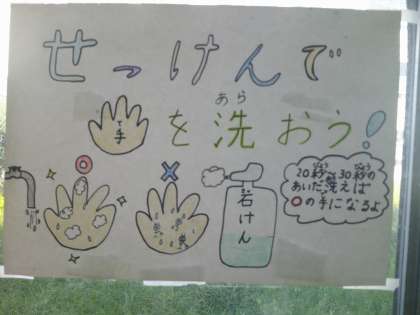 せっけんで
手を洗おう!
て
あら
○
×
石けん
20秒~30秒の
びょう
びょう
あいだ洗えば
○の手になるよ